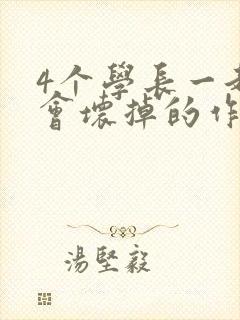 4个學長一
會壞掉的作
湯堅毅